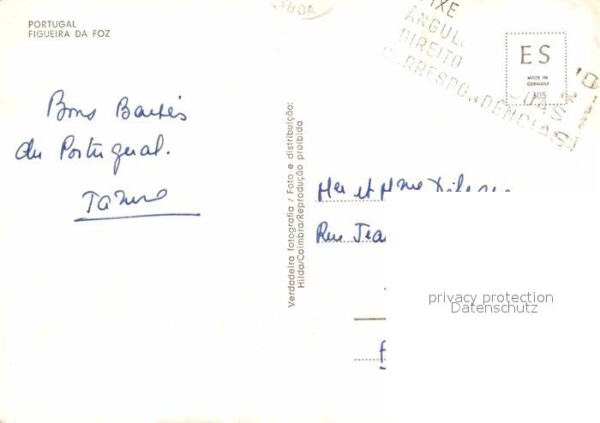 PORTUGAL
FIGUEIRA DA FOZ
Bons Baisés
du Portugal.
Verdadeira fotografia / Foto e distribuição:
Hilda/Coimbra/Reprodução proibida
LISBOA
FIXE
ANGUL.
DIREITO
CORRESPONDÊNCIAS
DAS
E S
MADE IN
GERMANY
305
Mer et Mme
Rue Jea
privacy protection
Datenschutz